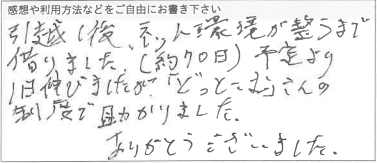 感想や利用方法などをご自由にお書き下さい
引越し後、ネット環境が整うまで
借りました。(約70日) 予定より
1日伸びましたが「どっとーむ」さんの
制度で助かりました。
ありがとうございました。